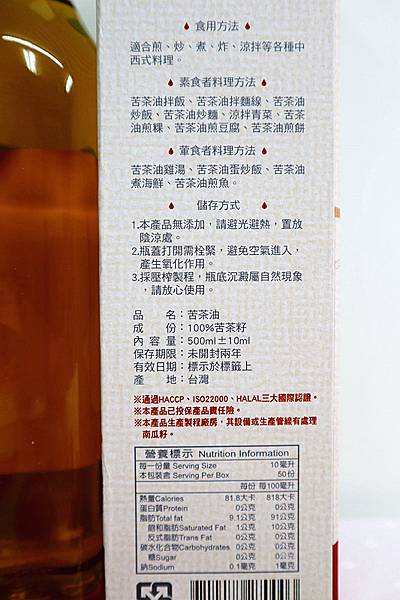 食用方法
適合煎、炒、煮、炸、涼拌等各種中
西式料理。
素食者料理方法
苦茶油拌飯、苦茶油拌麵線、苦茶油
炒飯、苦茶油炒麵、涼拌青菜、苦茶
油煎粿、苦茶油煎豆腐、苦茶油煎餅
葷食者料理方法
苦茶油雞湯、苦茶油蛋炒飯、苦茶油
煮海鮮、苦茶油煎魚。
儲存方式
1.本產品無添加，請避光避熱，置放
陰涼處。
2.瓶蓋打開需栓緊，避免空氣進入，
產生氧化作用。
3.採壓榨製程，瓶底沉澱屬自然現象
，請放心使用。
品名：苦茶油
成份：100%苦茶籽
內容量：500ml±10ml
保存期限：未開封兩年
有效日期：標示於標籤上
產地：台灣
※通過HACCP、ISO22000、HALAL三大國際認證。
※本產品已投保產品責任險。
※本產品生產製程廠房，其設備或生產管線有處理
南瓜籽。
營養標示 Nutrition Information
每一份量 Serving Size 10毫升
本包裝含 Serving Per Box 50份
每份 每100毫升
熱量Calories 81.8大卡 818大卡
蛋白質Protein 0公克 0公克
脂肪Total fat 9.1公克 91公克
飽和脂肪Saturated Fat 1公克 10公克
反式脂肪Trans Fat 0公克 0公克
碳水化合物Carbohydrates 0公克 0公克
糖Sugar 0公克 0公克
鈉Sodium 0.1毫克 1毫克